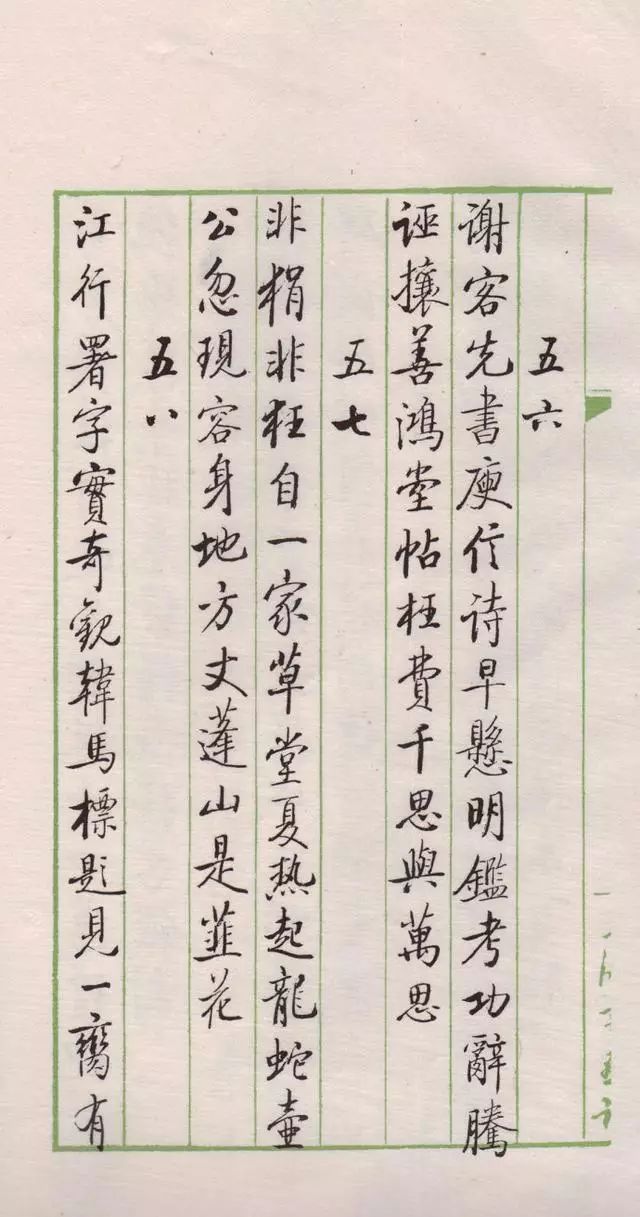 五六
谢客先書庾信诗早懸明鑑考功辭騰
诬攘善鴻堂帖枉費千思與萬思
五七
非狷非狂自一家草堂夏热起龍蛇壷
公忽現容身地方丈蓬山是韮花
五八
江行署字實奇觀韓馬標题見一臠有